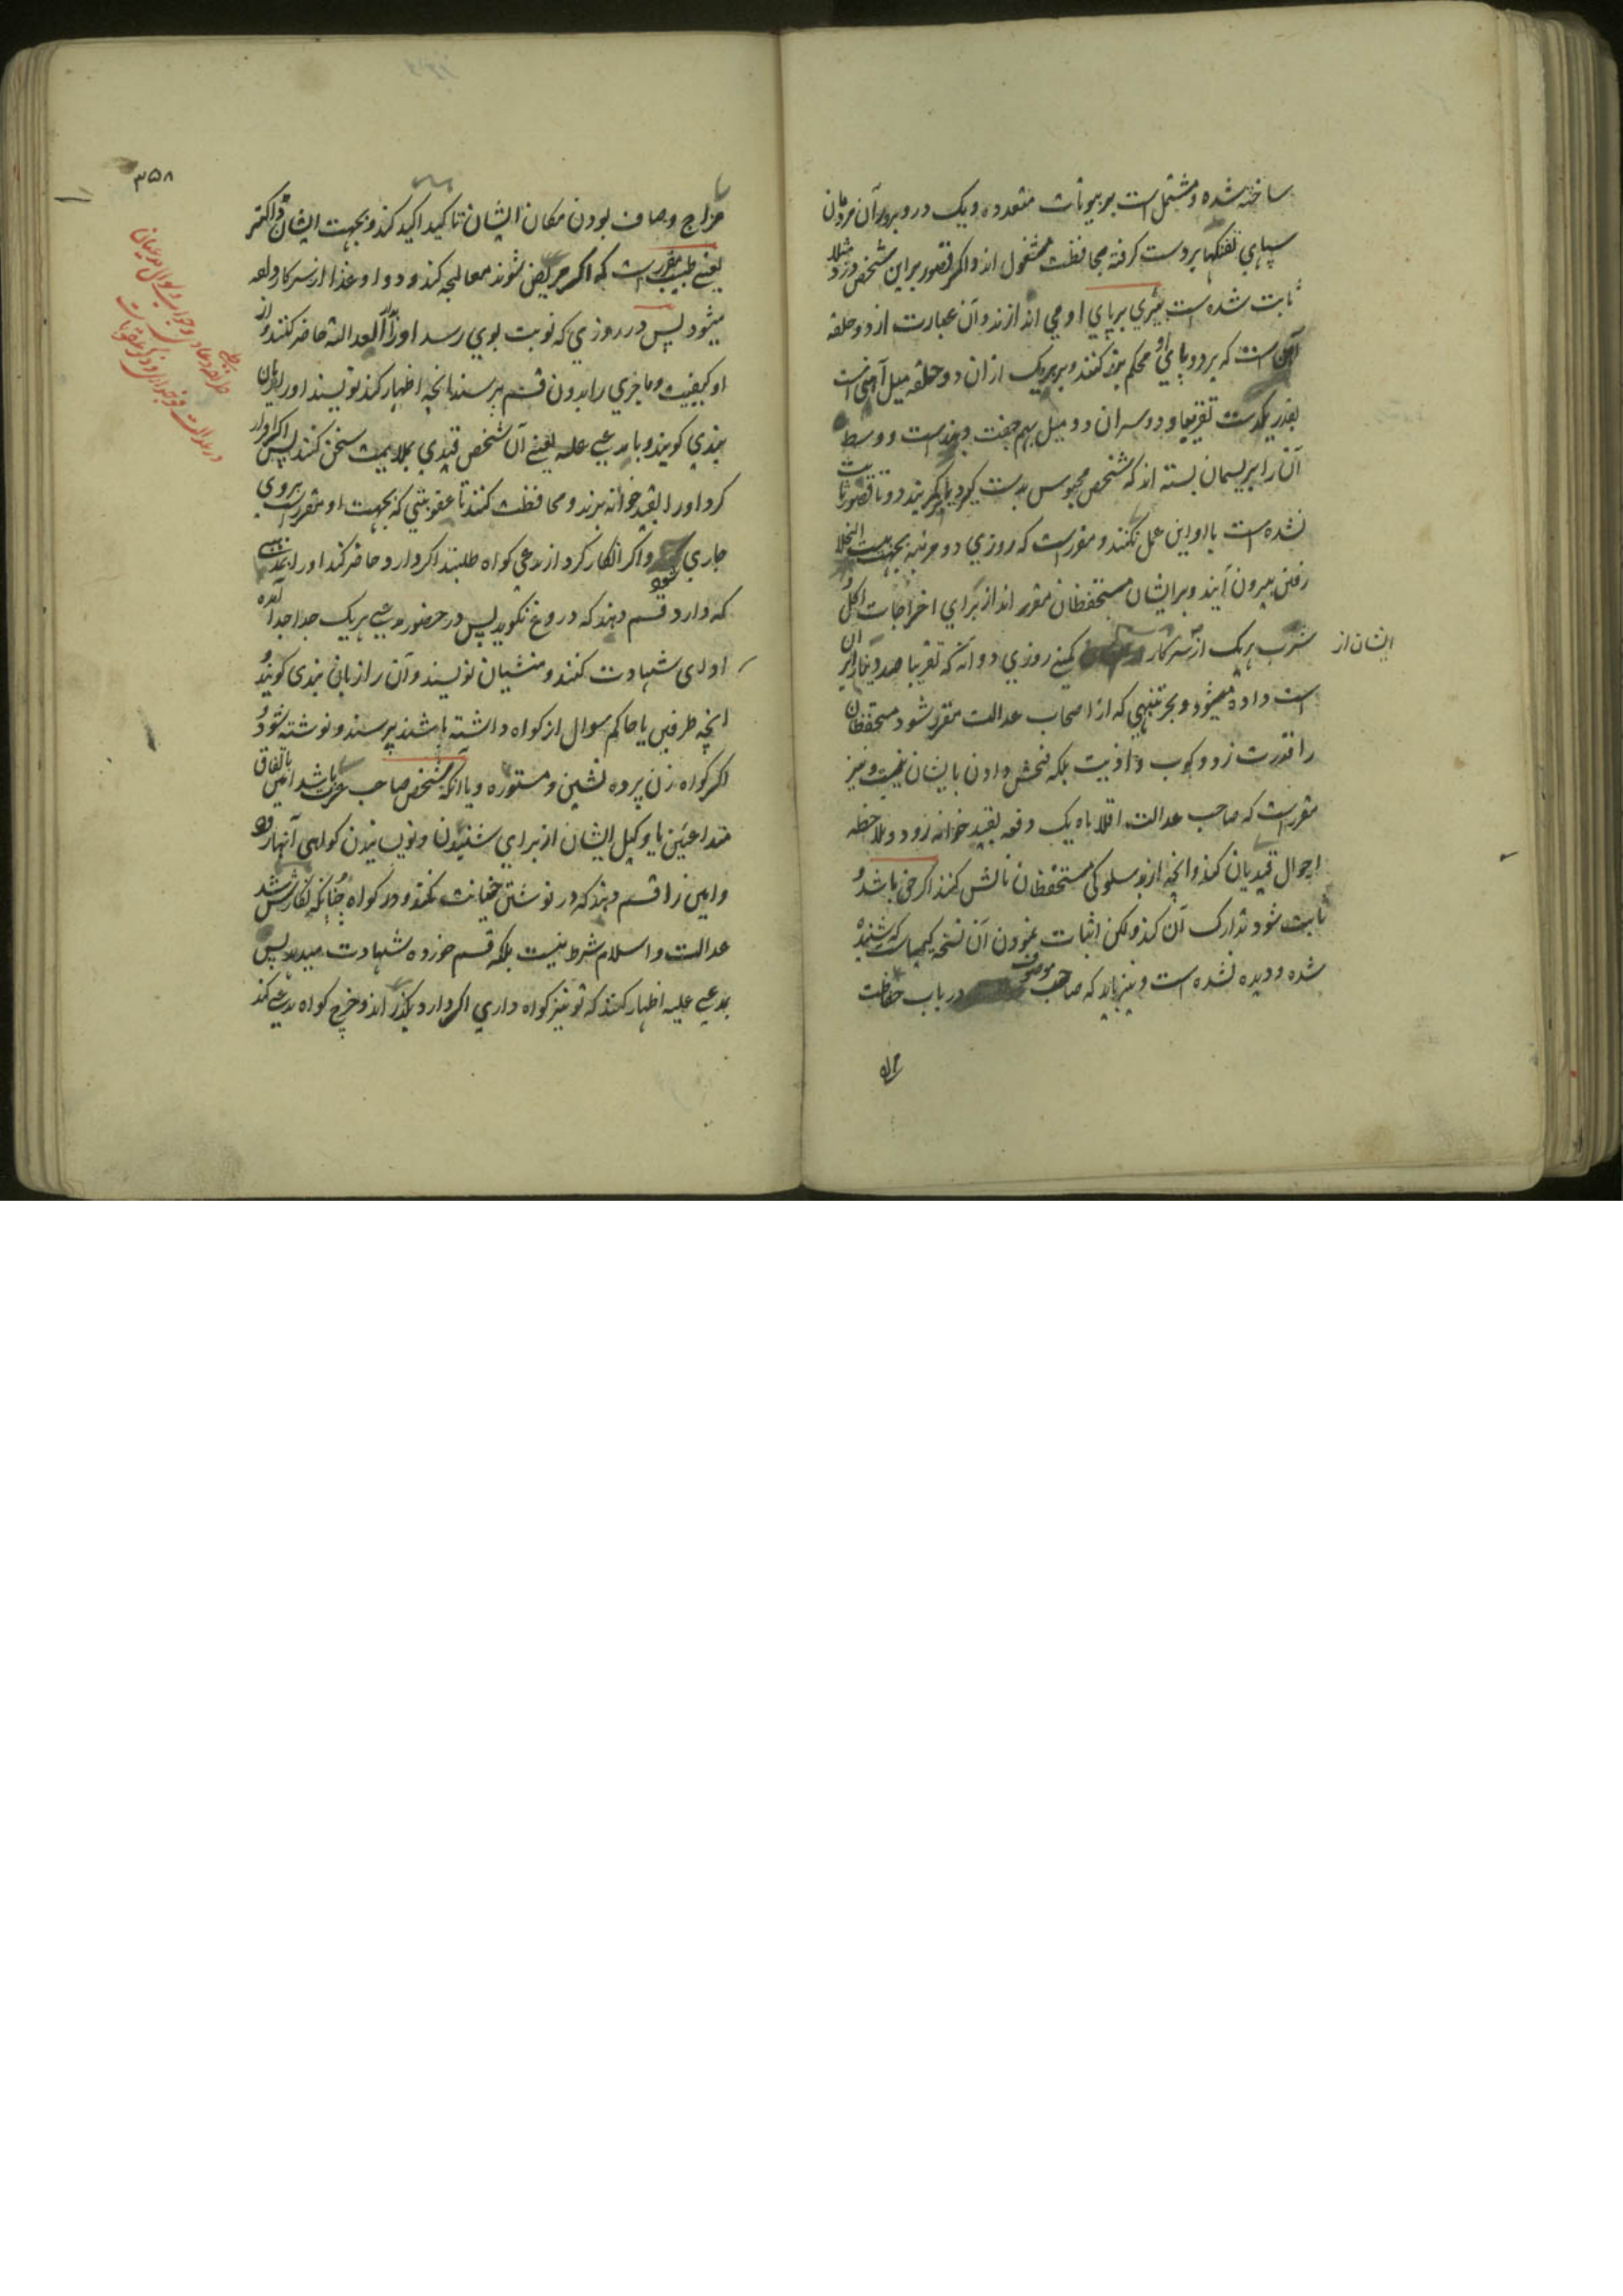 ساخته شده و مشتمل است بر بیوتات متعدده و یک در و بر در آن مردمان
سپاهی تفنگها بر دست گرفته بمحافظت مشغول اند و اگر قصور بر این شخص دزد مثلا
ثابت شده است بیری بر پای او می اندازند و آن عبارت از دو حلقه
آهن است که بر دو پای او محکم بند کنند و بر هریک از ان دو حلقه میل آهنی است
بقدر یکدست تقریبا و دو سر ان دو میل بهم جفت و بند است و وسط
آن را بریسمان بسته اند که شخص محبوس بدست گیرد یا بکمر بندد و تا قصور ثابت
نشده است با او این عمل نکنند و مقرر است که روزی دو مرتبه بجهت بیت الخلا
رفتن بیرون آیند و بر ایشان مستحفظان مقرر اند از برای اخراجات اکل و
شرب هریک از سرکار کمپنی روزی دو آنه که تقریبا صد دینار ایران
ایشان از
است داده میشود و بجز تنبیهی که از اصحاب عدالت مقرر شود مستحفظان
را قدرت زد و کوب و اذیت بلکه فحش دادن بایشان نیست و نیز
مقرر است که صاحب عدالت اقلا ماه یک دفعه بقید خوانه رود و ملاحظه
احوال قیدیان کند و انچه از بد سلوکی مستحفظان نالش کنند اگر حق باشد و
ثابت شود تدارک آن کند ولکن اثبات نمودن آن نسخه کیمیاست که شنیده
شده و دیده نشده است و نیز باید که صاحب موصوف در باب حفاظت
مزاج
۳۵۸
مزاج و صاف بودن مکان ایشان تاکید اکید کند و بجهت ایشان داکتر
یعنی طبیب مقرر است که اگر مریض شوند معالجه کند و دوا و غذا از سرکار داده
میشود پس در روزی که نوبت بوی رسد او را بعدالت حاضر کنند و از
او کیفیت و ماجری را بدون قسم پرسند انچه اظهار کند نویسند و او را بزبان
هندی گویند و با مدعی علیه یعنی آن شخص قیدی بملایمت سخن کنند پس اگر اقرار
کرد او را بقید خوانه برند و محافظت کنند تا عقوبتی که بجهت او مقرر است بروی
جاری شود و اگر انکار کرد از مدعی گواه طلبند اگر دارد حاضر کند او را بمذهبی
که دارد قسم دهند که دروغ نگوید پس در حضور مدعی هریک جدا جدا آمده
اولی شهادت کنند و منشیان نویسند و آن را زبان هندی گویند و
انچه طرفین یا حاکم سوال از گواه داشته باشند پرسند و نوشته شود و
اگر گواه زن پرده نشین و مستوره و یا آنکه شخص صاحب عزت باشد امین باتفاق
متداعیین یا وکیل ایشان از برای شنیدن و نویسانیدن گواهی آنها رود
و امین را قسم دهند که در نوشتن خیانت نکند و در گواه چنانکه نگارش شد
عدالت و اسلام شرط نیست بلکه قسم خورده شهادت میدهد پس
بمدعی علیه اظهار کنند که تو نیز گواه داری اگر دارد بگذراند و خرج گواه مدعی کند